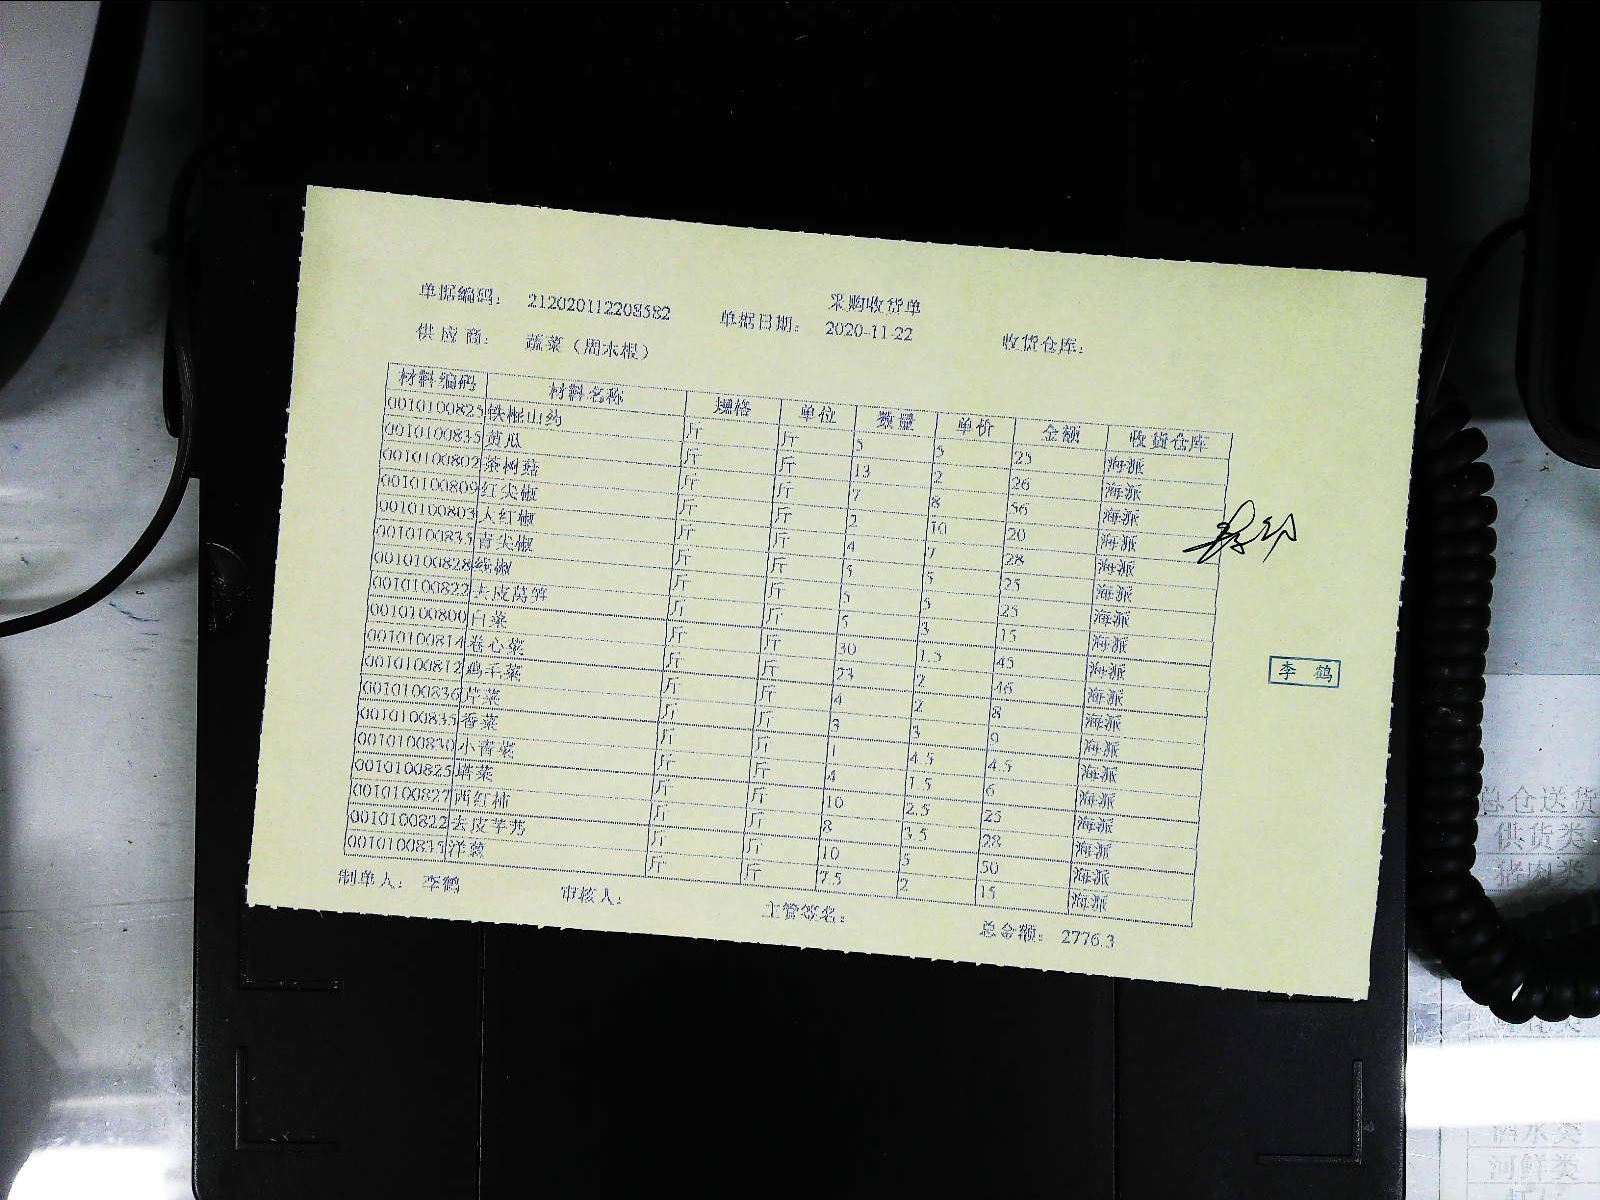 采购收货单
单据编码: 212020112208582 单据日期: 2020-11-22 收货仓库:
供应商: 蔬菜(周末根)
材料编码 材料名称 规格 单位 数量 单价 金额 收货仓库
0010100825 铁棍山药 斤 斤 5 5 25 海派
0010100835 黄瓜 斤 斤 13 2 26 海派
0010100802 茶树菇 斤 斤 7 8 56 海派
0010100809 红尖椒 斤 斤 2 10 20 海派
0010100803 大红椒 斤 斤 4 7 28 海派
0010100835 青尖椒 斤 斤 5 5 25 海派
0010100828 线椒 斤 斤 5 5 25 海派
0010100822 去皮莴笋 斤 斤 5 3 15 海派
0010100800 白菜 斤 斤 30 1.5 45 海派
0010100814 卷心菜 斤 斤 23 2 46 海派
0010100812 鸡毛菜 斤 斤 4 2 8 海派
0010100836 芹菜 斤 斤 3 3 9 海派
0010100835 香菜 斤 斤 1 4.5 4.5 海派
0010100830 小青菜 斤 斤 4 1.5 6 海派
0010100825 塔菜 斤 斤 10 2.5 25 海派
0010100827 西红柿 斤 斤 8 3.5 28 海派
0010100822 去皮芋艿 斤 斤 10 5 50 海派
0010100835 洋葱 斤 斤 7.5 2 15 海派
李鹤
制单人: 李鹤 审核人: 主管签名: 总金额: 2776.3
总仓送货
供货类
猪肉类
酒水类
河鲜类